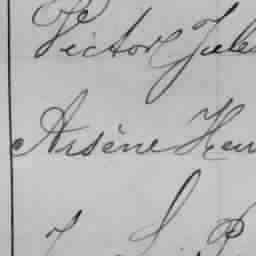 Victor Jule
Arsène Hen